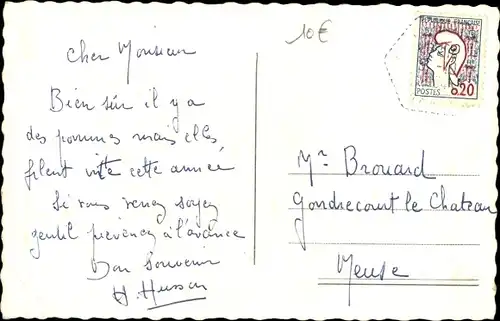 10€
REPUBLIQUE FRANCAISE
POSTES 0.20
Cher Monsieur
Bien sûr il y a
des pommes mais elles
filent vite cette année
Si vous venez soyez
gentil prévenez à l'avance
Bon Souvenir
H. Husson
Mr Brouard
Gondrecourt le Chateau
Meuse